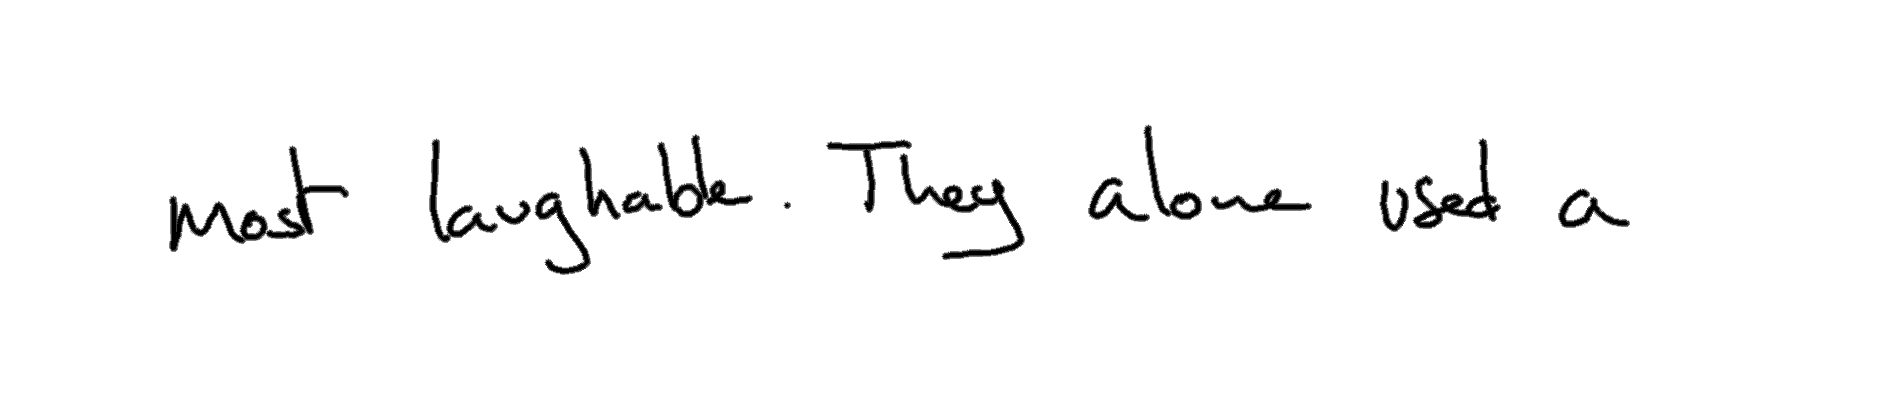 most laughable. They alone used a